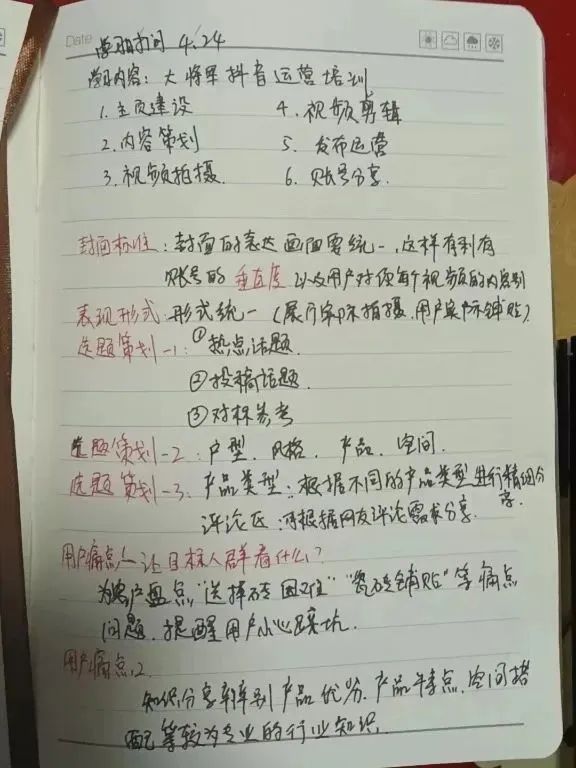 Date
学习时间 4.24
学习内容: 大将军抖音运营培训
1. 主页建设 4. 视频剪辑
2. 内容策划 5. 发布运营
3. 视频拍摄. 6. 账号分享.
封面标准: 封面的表达画面要统一, 这样有利有
账号的垂直度 以及用户对你每个视频的内容别
表现形式: 形式统一 (展厅实际拍摄, 用户实际铺贴).
选题策划-1: ①热点话题.
②投稿话题.
③对标参考
选题策划-2: 户型. 风格. 产品. 空间.
选题策划-3. 产品类型: 根据不同的产品类型进行精细分享.
评论区: 可根据网友评论需求分享.
用户痛点1—让目标人群看什么?
为客户盘点"选择砖困难""瓷砖铺贴"等痛点
问题. 提醒用户小心踩坑.
用户痛点2.
知识分享辨别产品优劣. 产品特点. 空间搭
配等较为专业的行业知识.